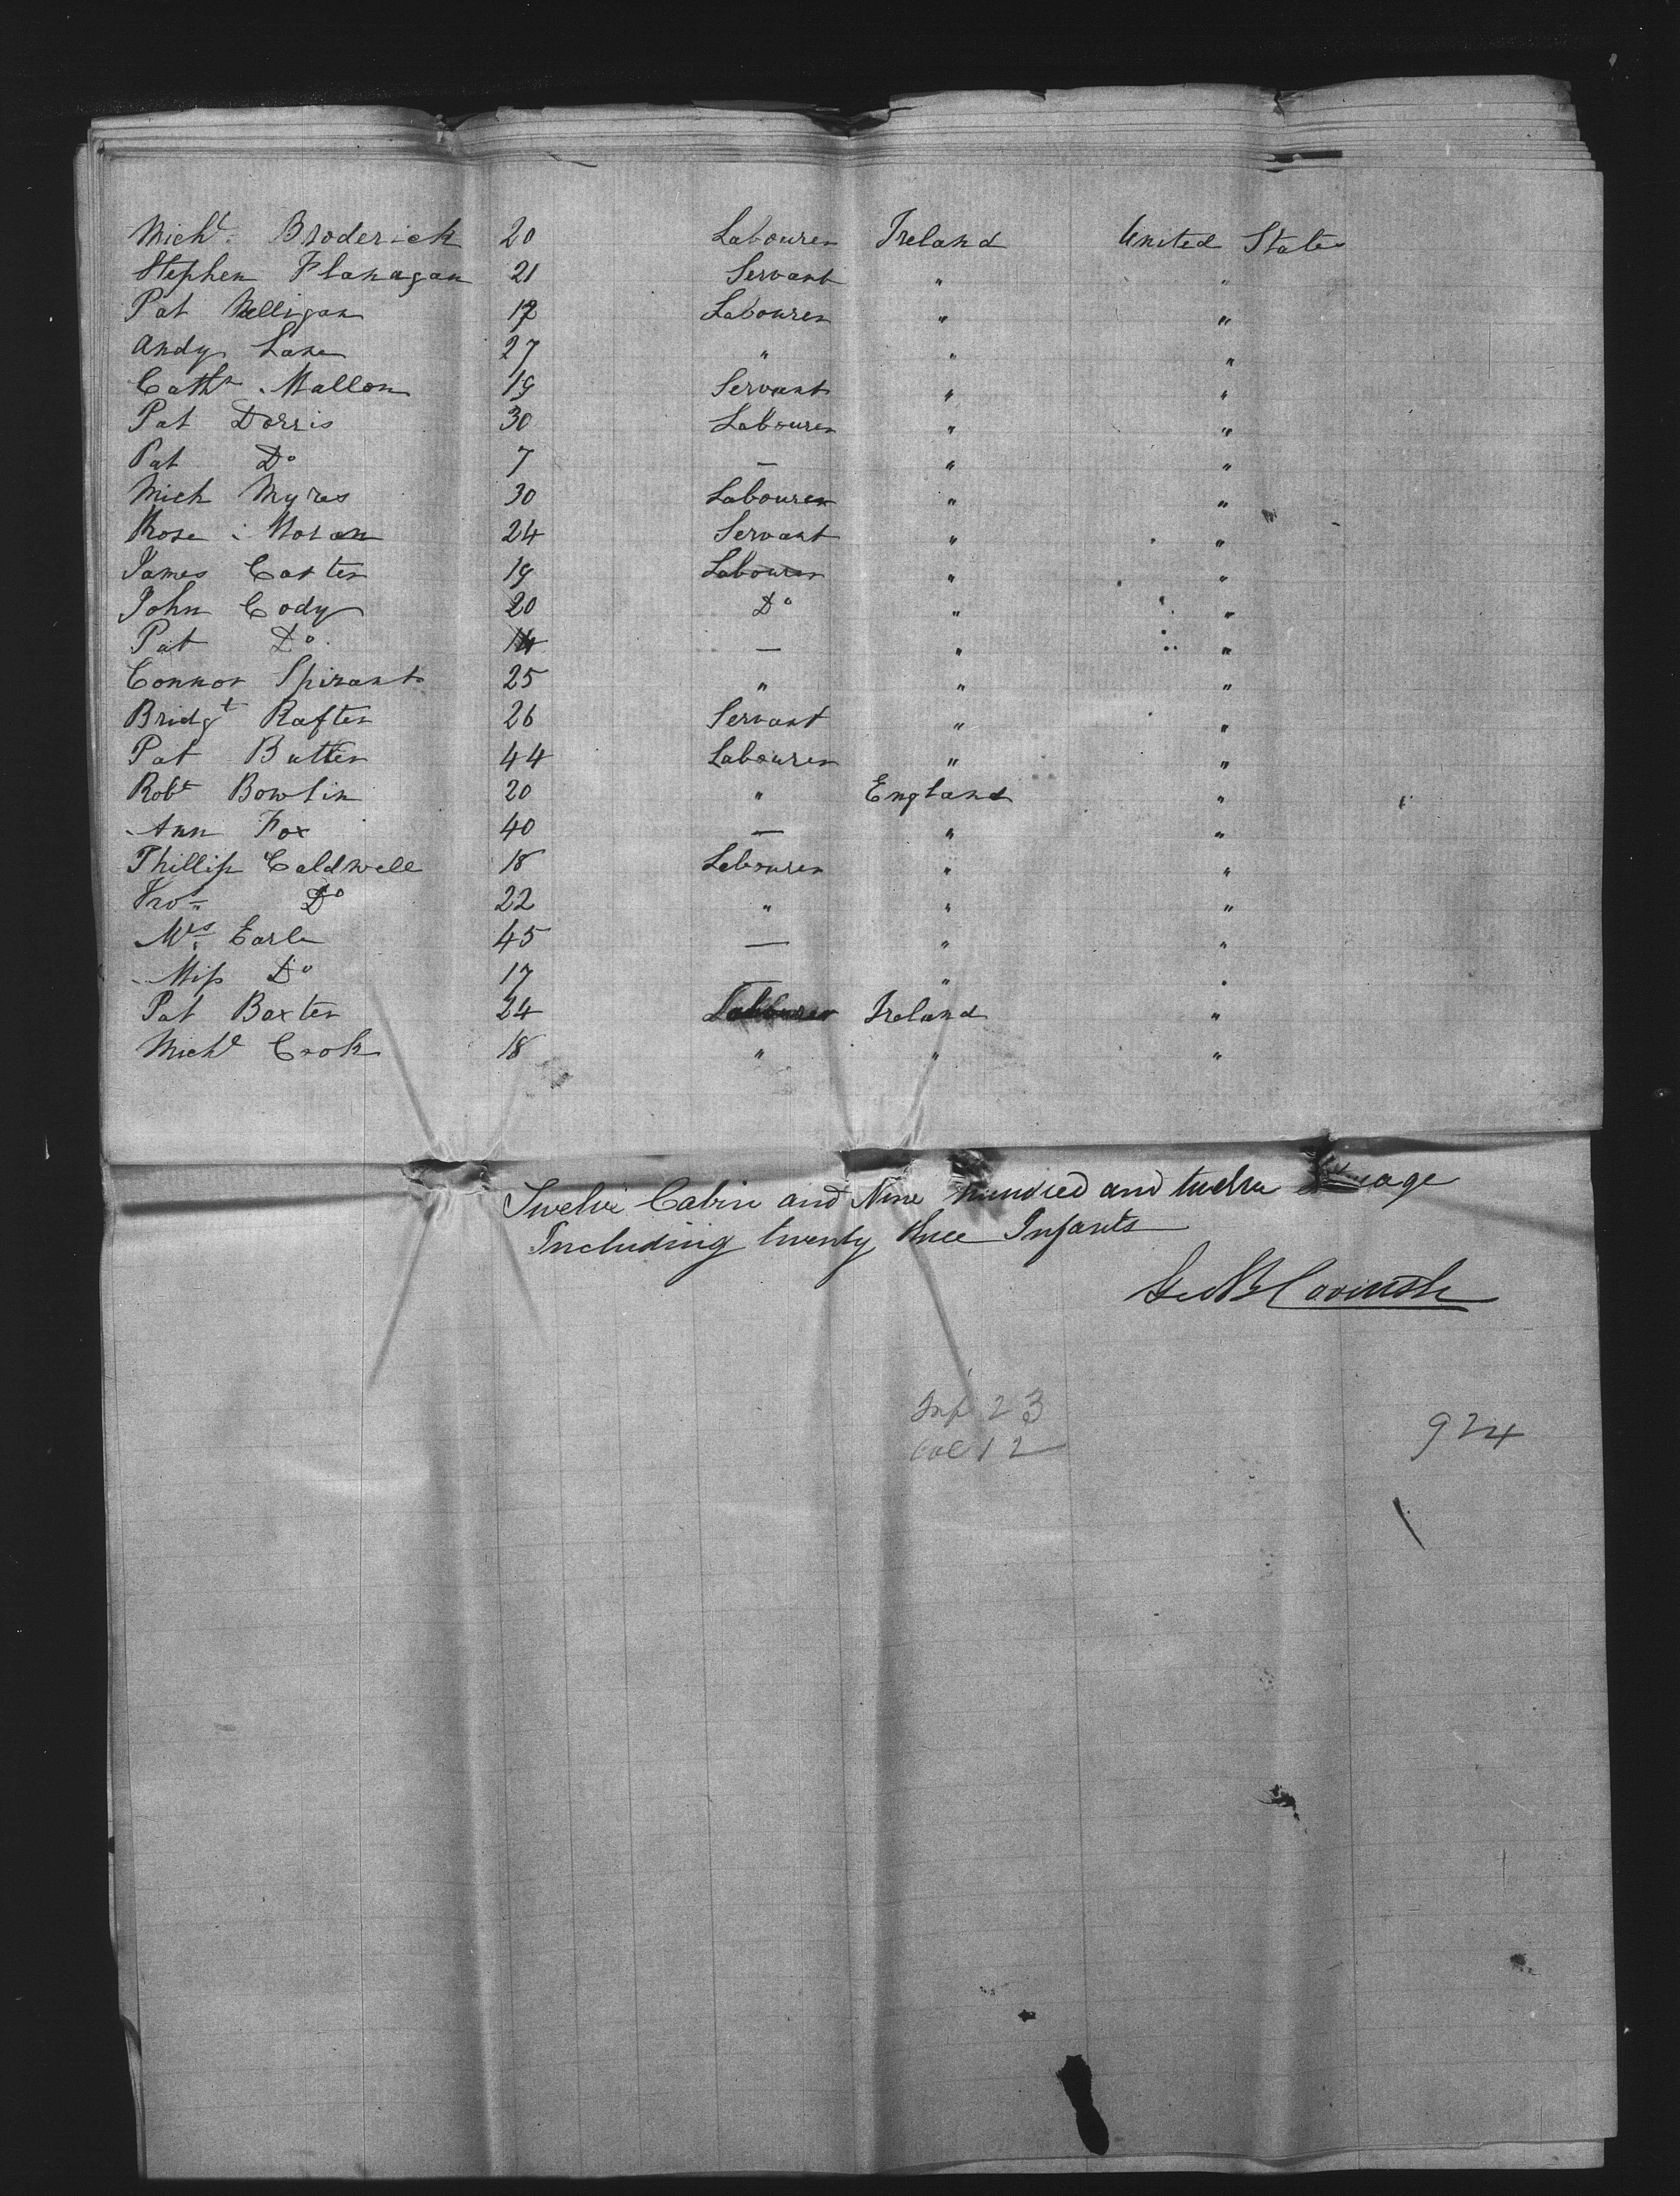 Michl. Broderick 20 Labourer Ireland United States
Stephen Flanagan 21 Servant " "
Pat Nelligan 17 Labourer " "
Andy Lane 27 " " "
Cathn Mallon 19 Servant " "
Pat Dorris 30 Labourer " "
Pat Do 7 — " "
Mich Myres 30 Labourer " "
Rose Moran 24 Servant " "
James Carter 19 Labourer " "
John Cody 20 Do " "
Pat Do 14 — " "
Connor 25 " " "
Bridgt Rafter 26 Servant " "
Pat Butter 44 Labourer " "
Robt Bowlin 20 " England "
Ann Fox 40 — " "
Phillip Caldwell 18 Labourer " "
Do 22 " " "
Mrs Earle 45 — " "
Miss Do 17 — " "
Pat Baxter 24 Labourer Ireland "
Michl Crook 18 " " "
Twelve Cabin and Nine hundred and twelve
Including twenty three Infants
Inf 23
12
924